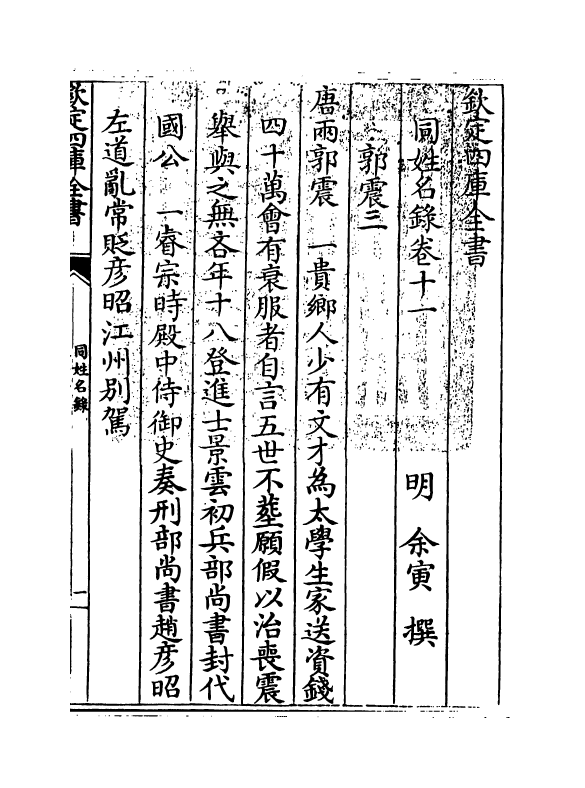 欽定四庫全書
同姓名錄卷十一
明 余寅 撰
郭震三
唐兩郭震 一貴鄉人少有文才為太學生家送資錢
四十萬會有衰服者自言五世不塟願假以治喪震
舉與之無吝年十八登進士景雲初兵部尚書封代
國公 一睿宗時殿中侍御史奏刑部尚書趙彦昭
左道亂常貶彦昭江州別駕
欽定四庫全書
同姓名錄
一